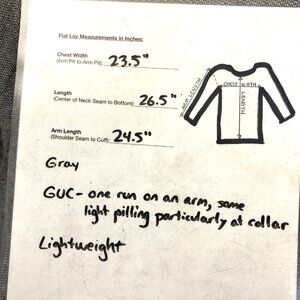 Flat Lay Measurements in Inches:
Chest Width
(Arm Pit to Arm Pit) 23.5"
Length
(Center of Neck Seam to Bottom) 26.5"
Arm Length
(Shoulder Seam to Cuff) 24.5"
ARM LENGTH
CHEST WIDTH
LENGTH
Gray
GUC- one run on an arm, some
light pilling particularly at collar
Lightweight